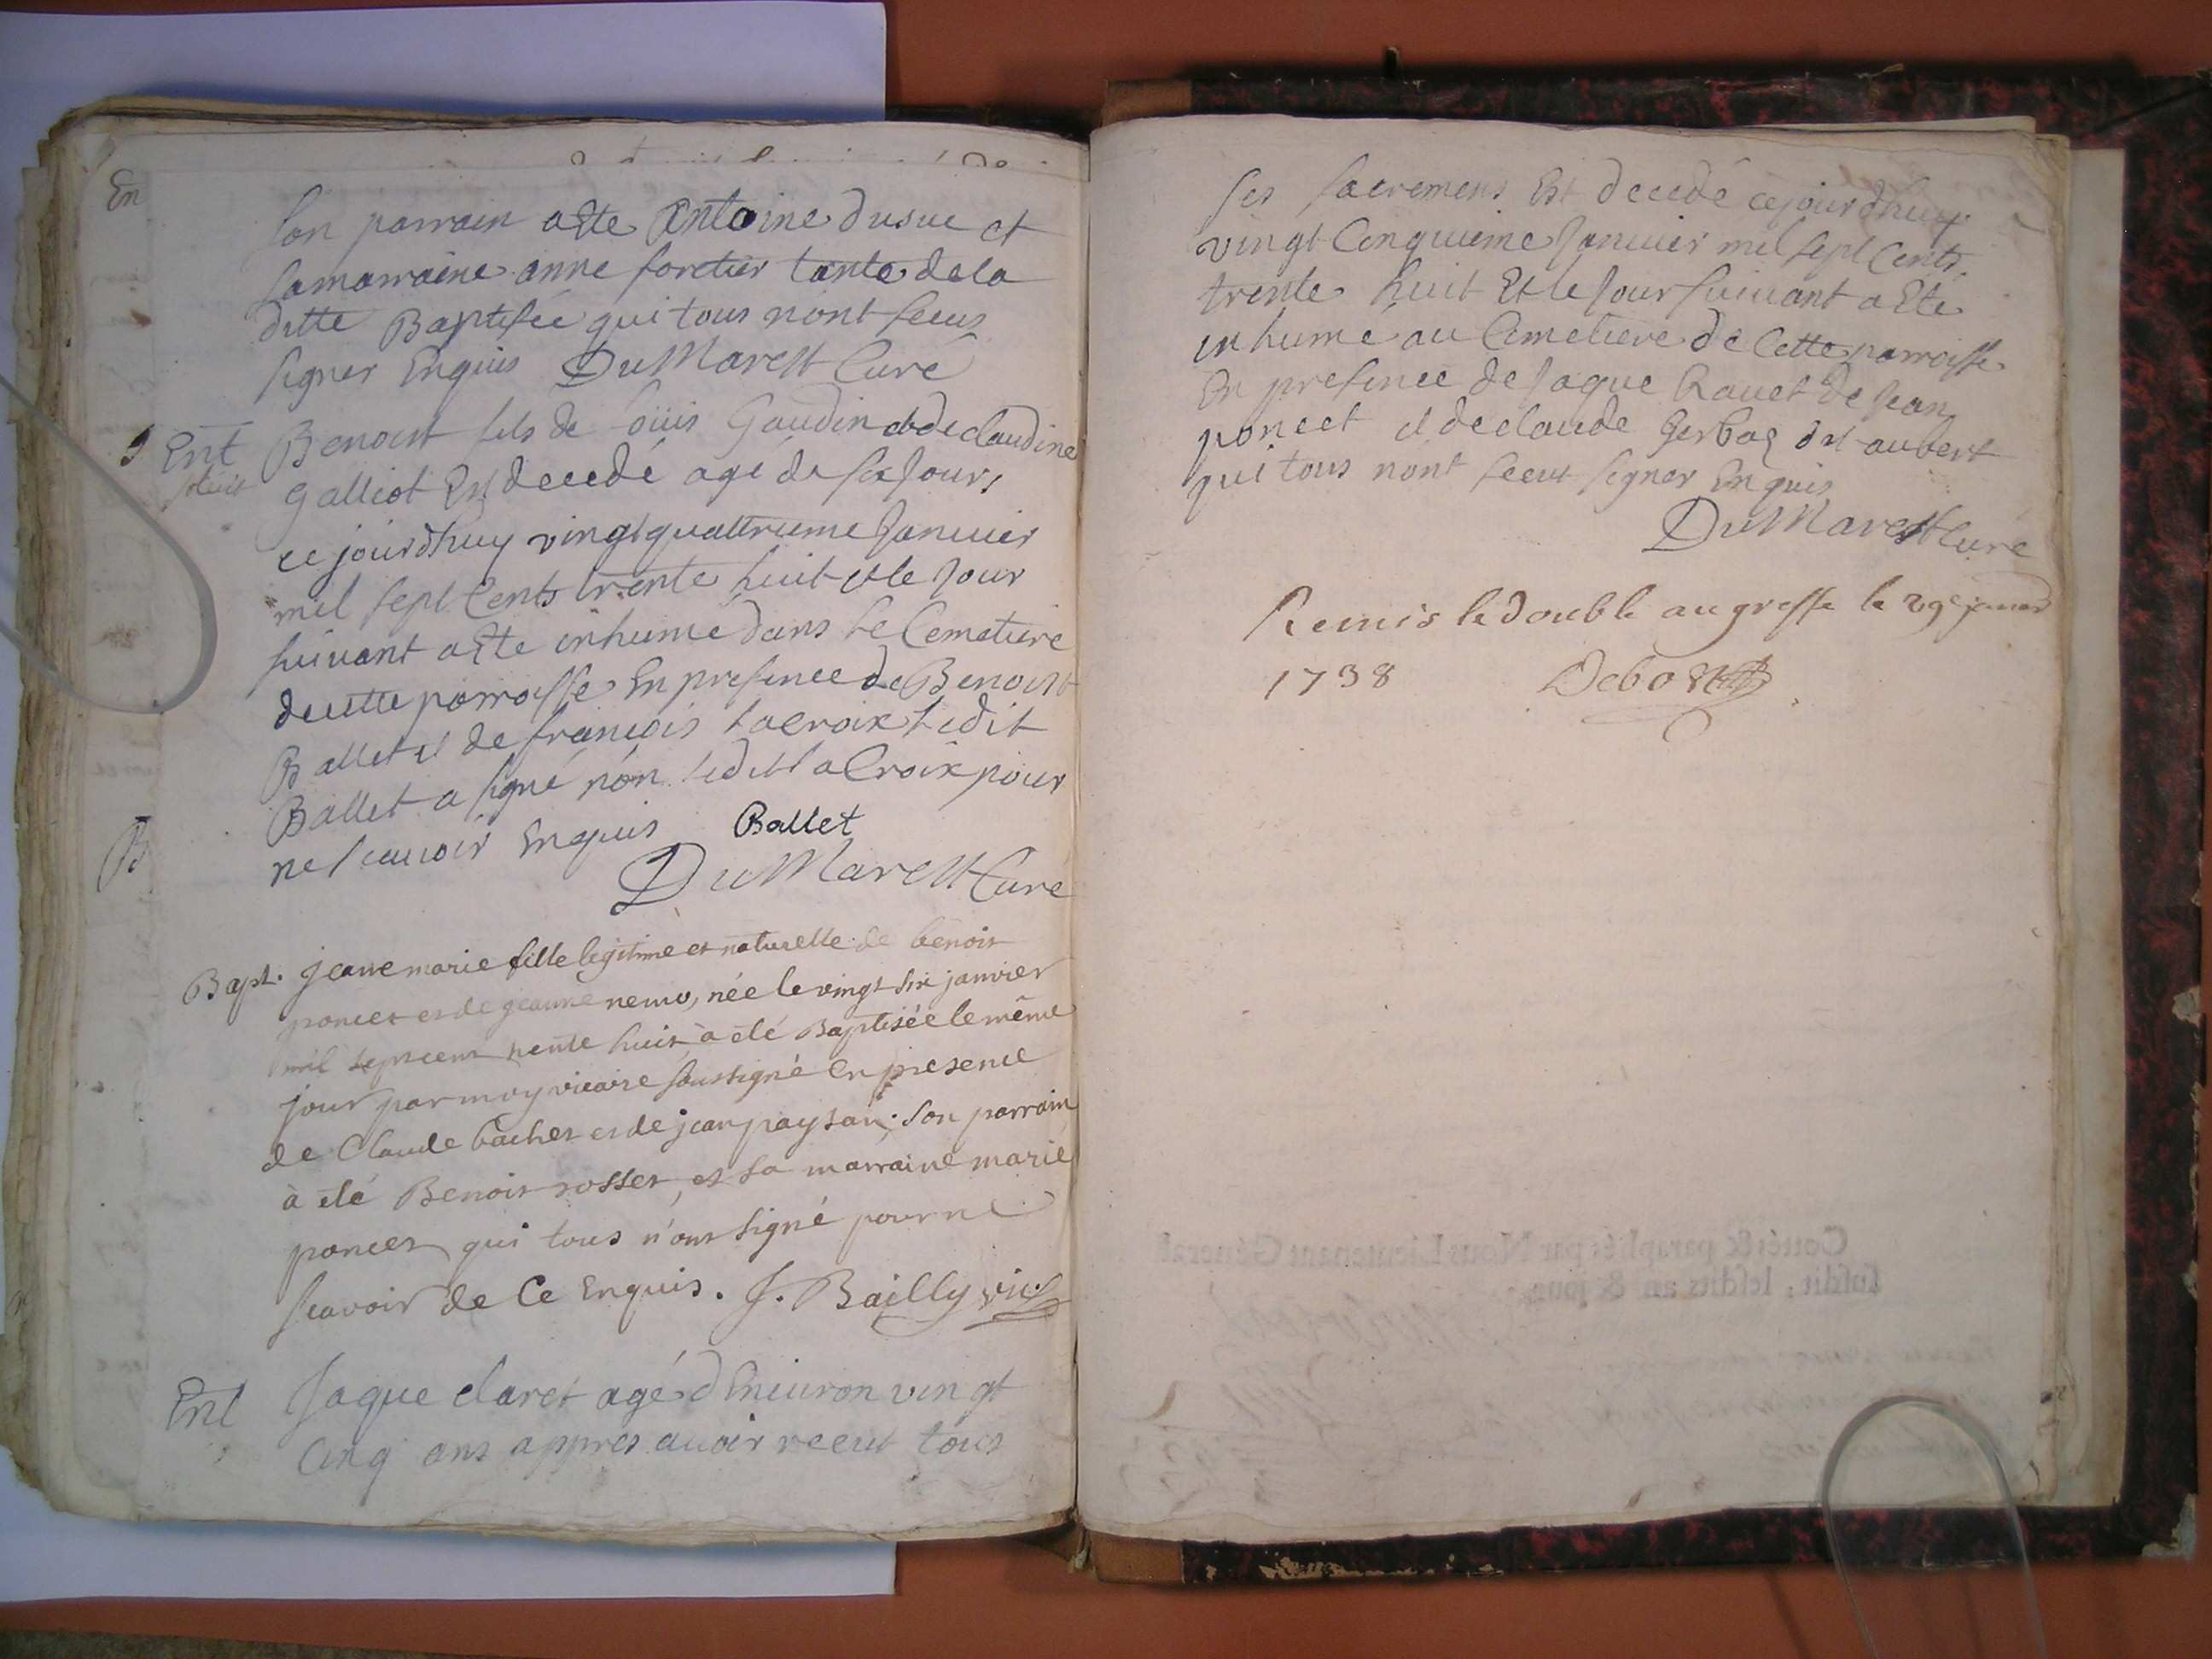 En
son parrain a Ete Antoine dusuc et
sa marraine anne foretier tante de la
ditte Baptisée qui tous nont sceus
signer Enquis DuMarest Curé
Ent Benoist fils de loüis Gaudin et de claudine
Galliot Est decedé agé de six Jours
ce jourdhuy vingt quattrieme Janvier
mil sept Cents trente huit et le Jour
suivant a Ete inhumé dans le Cemetiere
de cette parroisse En presence de Benoist
Ballet et de françois lacroix ledit
Ballet a signé nón ledit la Croix pour
ne scauoir Enquis Ballet
DuMarest Curé
B
Bapt. jeane marie fille legitime et naturelle de benoit
poncet et de jeanne nemo, née le vingt six janvier
mil sept cent trente huit à eté Baptisée le même
jour par moy vicaire soussigné en presence
de Claude bachet et de jean paysan; son parrain
à eté Benoit rosset, et sa marraine marie
poncet qui tous n'ont signé pour ne
scavoir de Ce Enquis. J. Bailly vic.
Ent Jaque claret agé d Enuiron vingt
Cinq ans appres auoir receut tous
ses sacremens Est decedé cejourdhuy
vingt Cinquieme Januier mil sept Cents
trente huit Et le Jour suiuant a Eté
inhumé au Cimetiere de Cette parroisse
En presence de Jaque Rauet de Jean
poncet et de claude Gerbas dit aubert
qui tous nónt sceut signer Enquis
DuMarest Curé
Remis le double au greffe le 29e janer
1738 Debost
Cottés & paraphés par Nous Lieutenant Général
susdit, lesdits an & jour